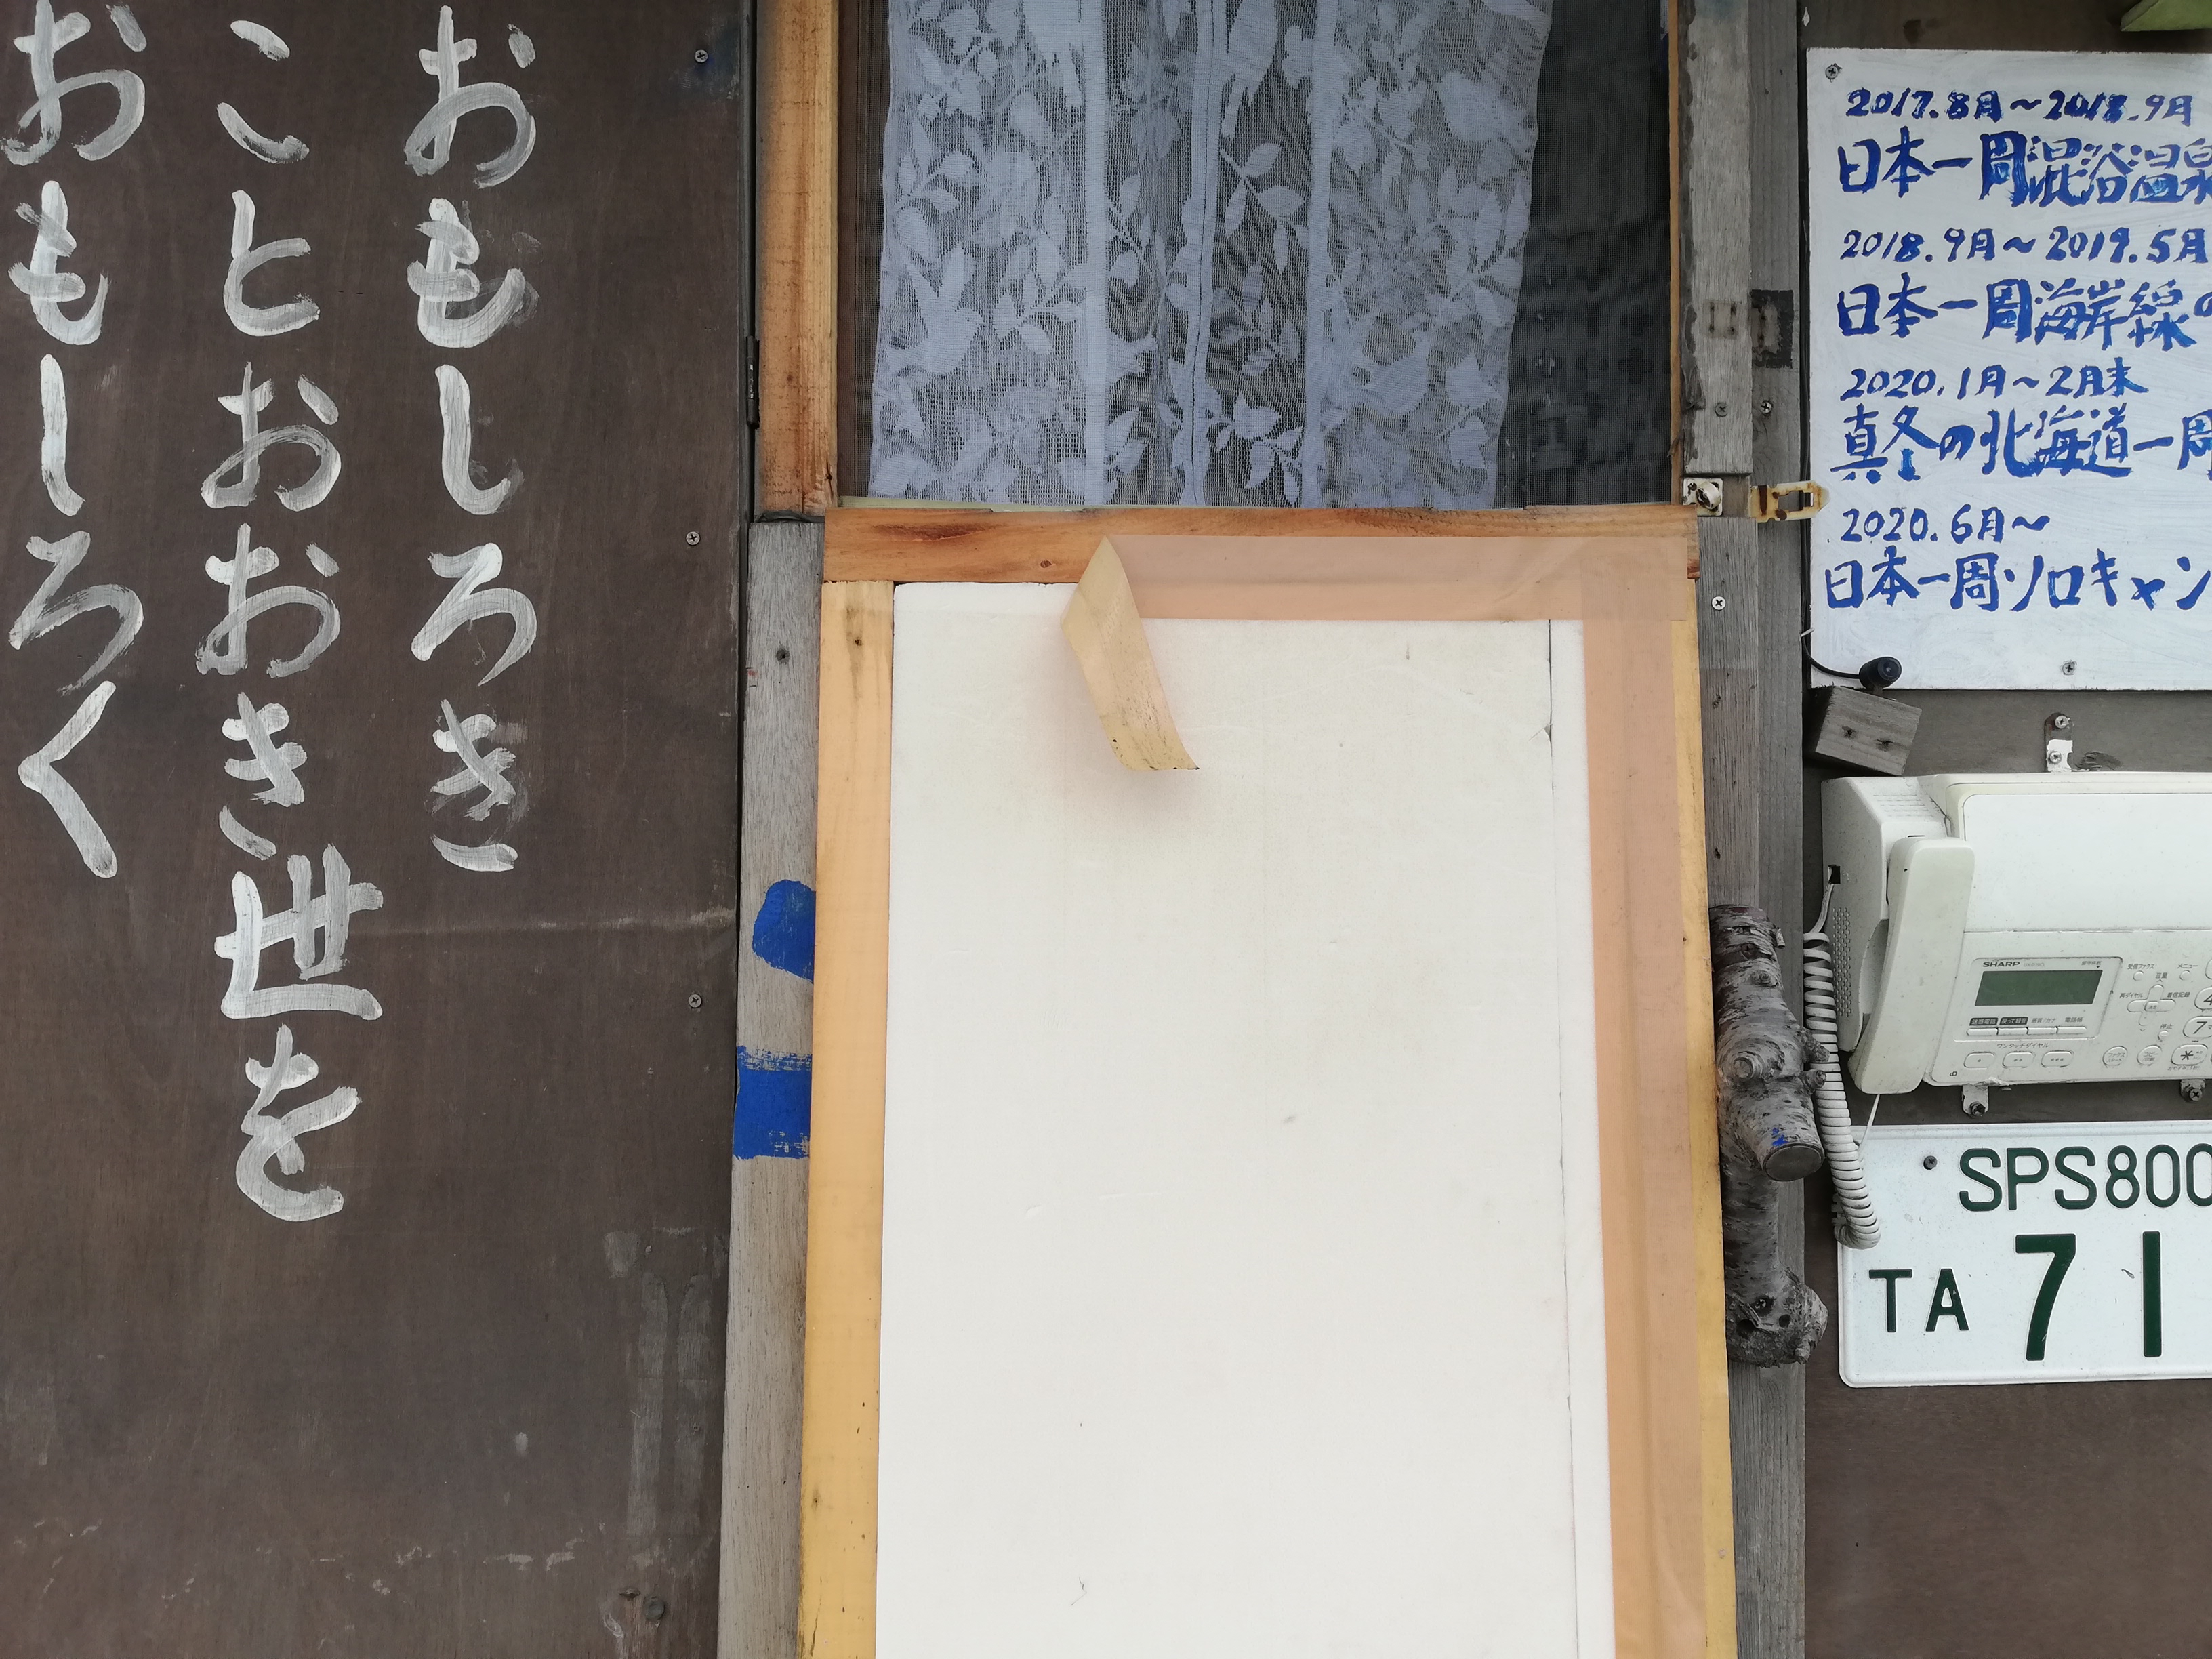 おもしろき
ことおおき世を
おもしろく
2017.8月〜2018.9月
日本一周混浴温泉
2018.9月〜2019.5月
日本一周海岸線の
2020.1月〜2月末
真冬の北海道一周
2020.6月〜
日本一周ソロキャン
SHARP
ワンタッチダイヤル
SPS800
TA 71